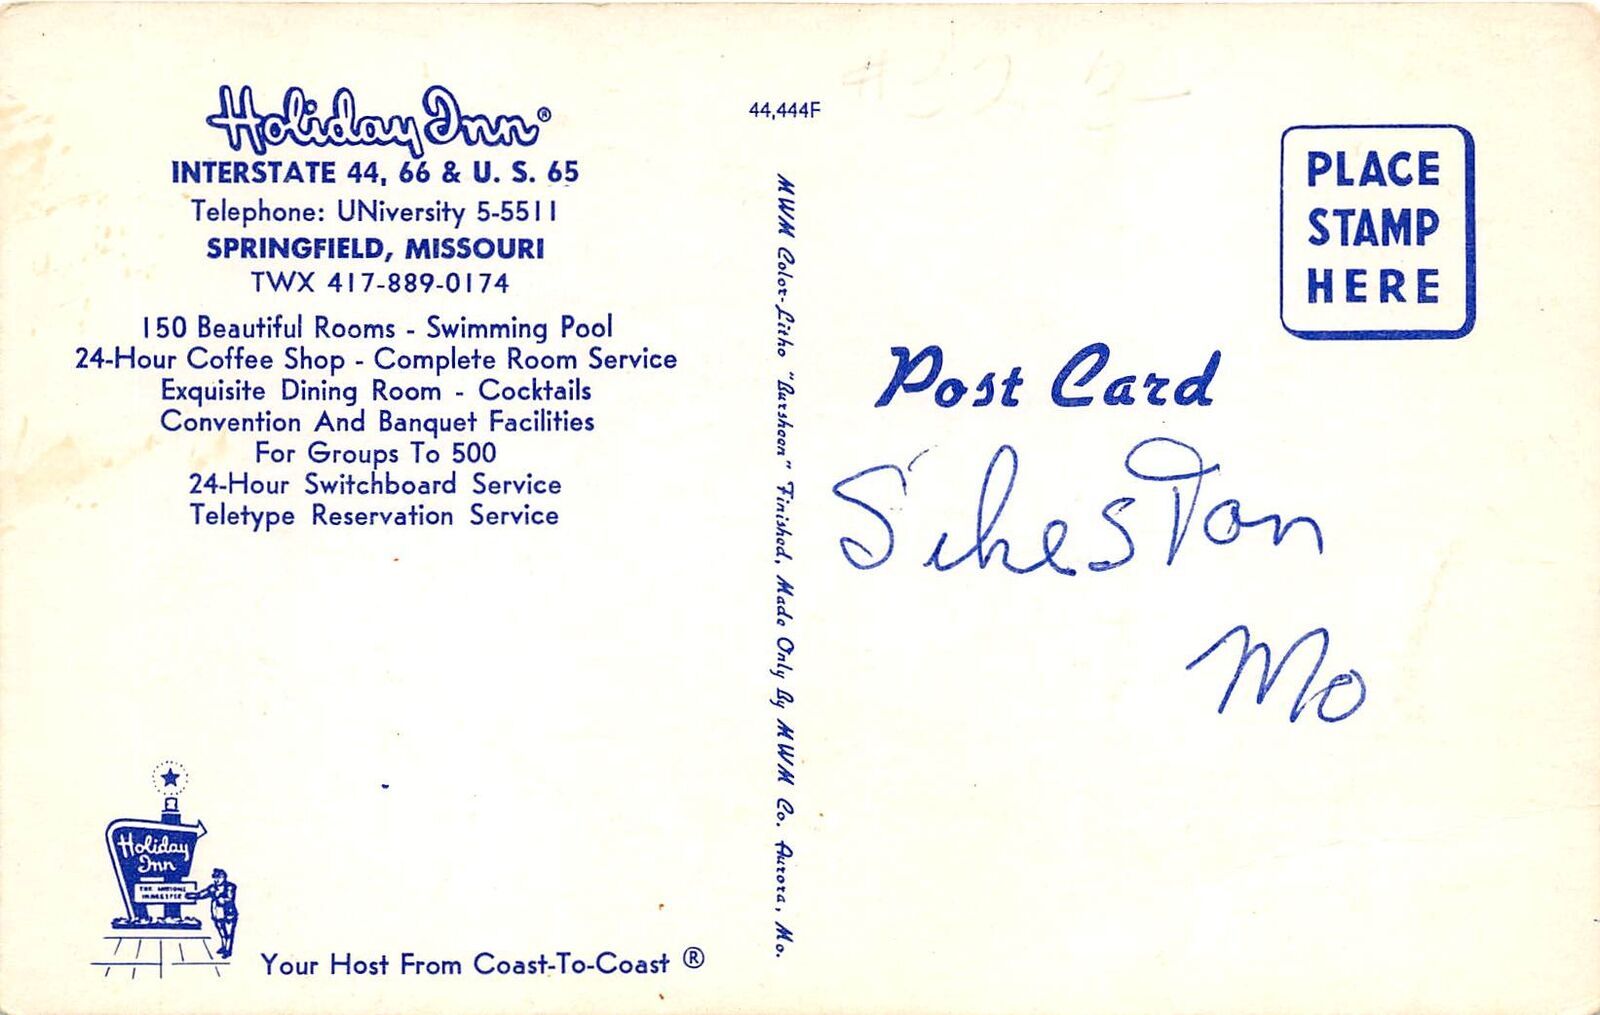 Holiday Inn®
INTERSTATE 44, 66 & U. S. 65
Telephone: UNiversity 5-5511
SPRINGFIELD, MISSOURI
TWX 417-889-0174
150 Beautiful Rooms - Swimming Pool
24-Hour Coffee Shop - Complete Room Service
Exquisite Dining Room - Cocktails
Convention And Banquet Facilities
For Groups To 500
24-Hour Switchboard Service
Teletype Reservation Service
Holiday
Inn
Your Host From Coast-To-Coast ®
44,444F
MWM Color-Litho "Bursheen" Finished, Made Only By MWM Co. Aurora, Mo.
PLACE
STAMP
HERE
Post Card
Sikeston
Mo